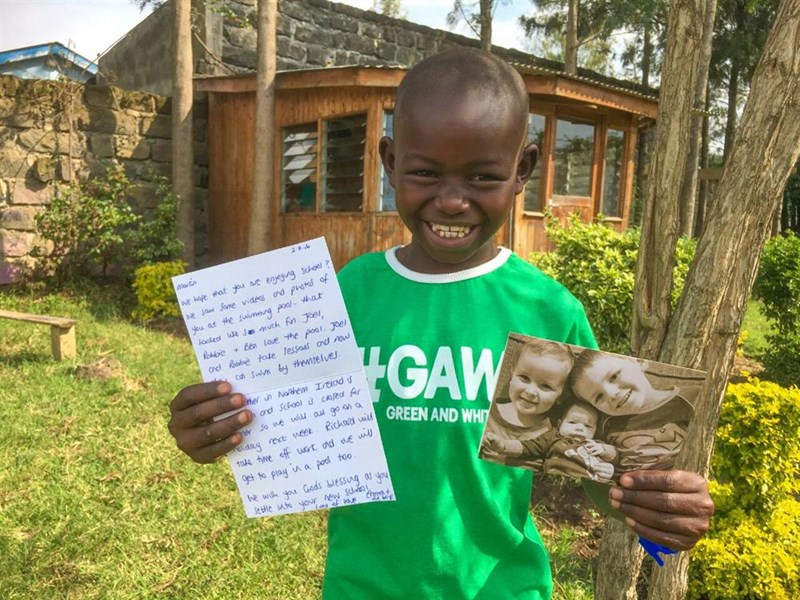 2.7.16
We hope that you are enjoying school?
We saw some videos and photos of
you at the swimming pool. that
looked like so much fun. Joel,
Robbie + Ben love the pool. Joel
and Robbie take lessons and now
can swim by themselves.
in Northern Ireland is
and school is closed for
so we will all go on a
holiday next week. Richard will
take time off work and we will
get to play in a pool too.
We wish you God's blessing as you
settle into your new school.
lots of love
#GAW
GREEN AND WHIT